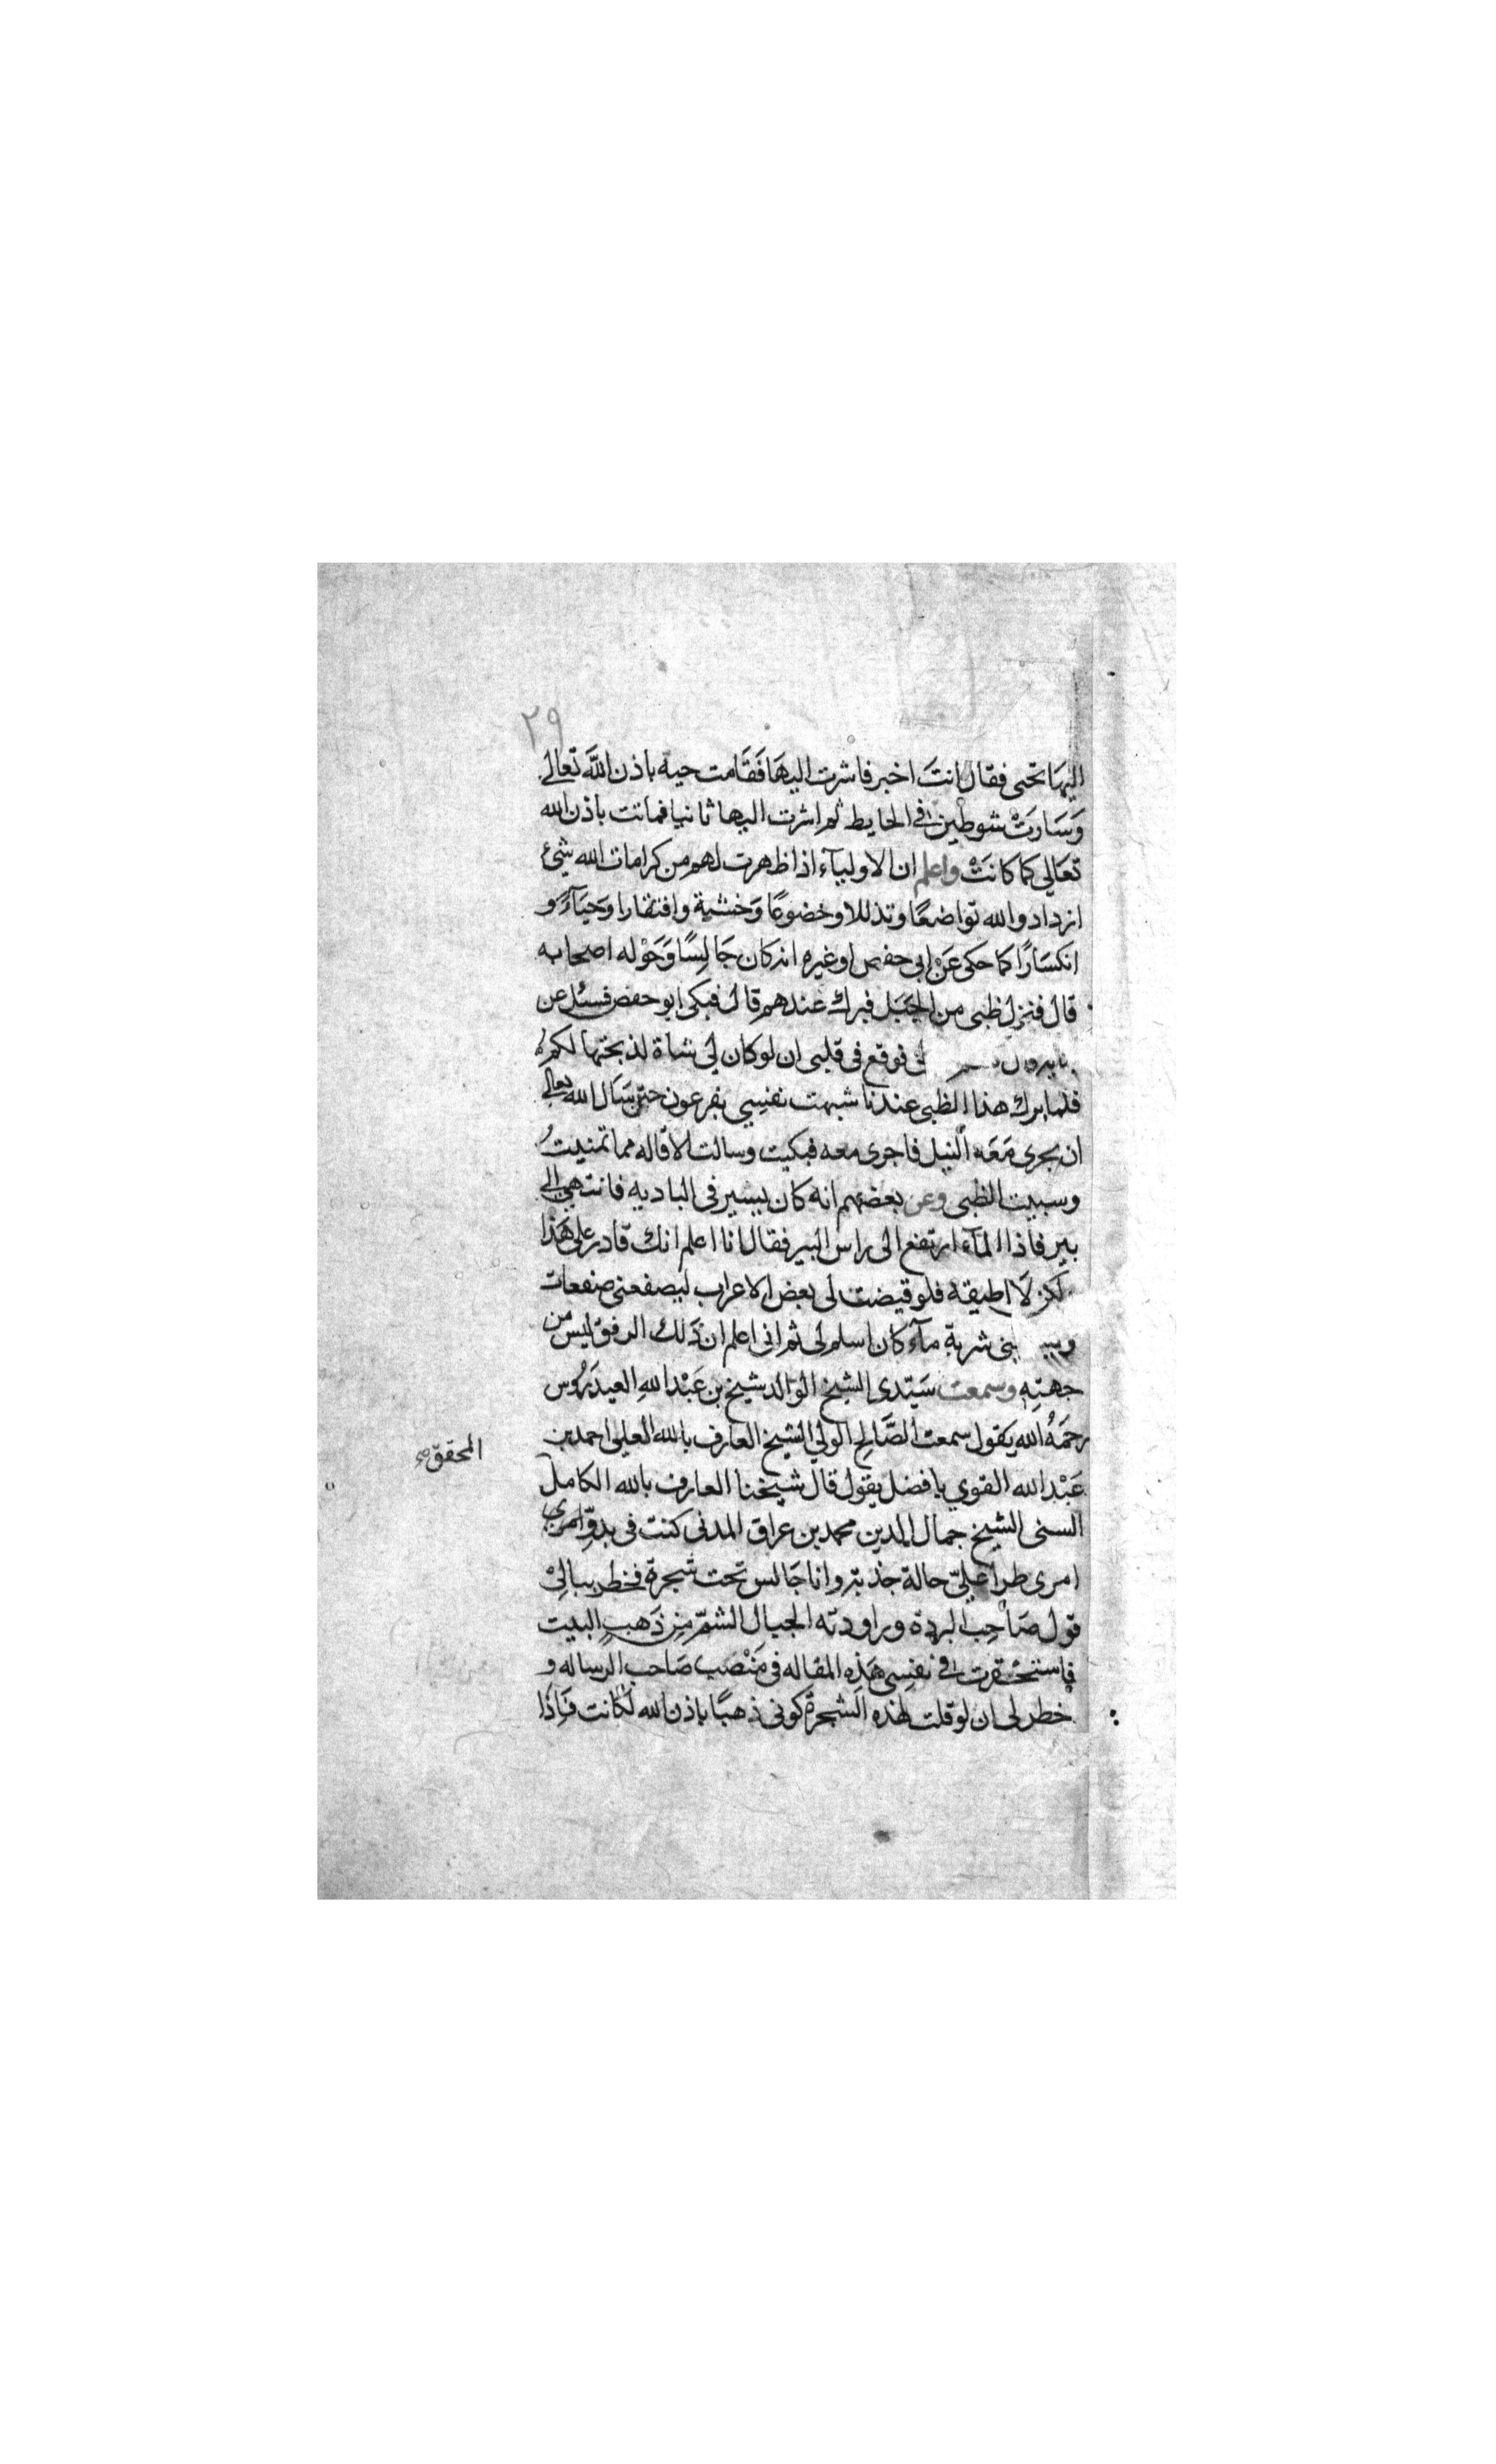 ٢٩
اليهَا تحيى فقال انتَ اخبر فاشرت اليهَا فَقَامت حية باذن اللَّه تعالى
وَسَارَتْ شوطين في الحايط ثم اشرت اليها ثانيا فماتت باذن الله
تعَالى كما كانَتْ واعلم ان الاوليآء اذا ظهرت لهم من كرامات الله شئ
ازدادو الله تواضعًا وتذللا وخضوعًا وَخشية وافتقارا وحَيَآءً و
انكسَارًا كما حكى عَنْ ابى حفص او غيره انه كان جَالِسًا وَحَوْله اصحابه
قال فنزل ظبى من الجبَل فبرك عندهم قال فبكى ابو حفص فسئل عن
لى فوقع فى قلبى ان لو كان لي شاة لذبحتها لكم
فلما برك هذا الظبى عندنا شبهت نفسِي بفرعون حين سَال الله تعالى
ان يجرى مَعَه النيل فاجرى معه فبكيت وسالت الاقاله مما تمنيتُ
وسبيت الظبى وعن بعضهم انه كان يسير فى الباديه فانتهى الى
بير فاذا المآء ارتفع الى راس البير فقال انا اعلم انك قادر على هَذا
لكن لَا اطيقه فلو قيضت لى بعض الاعراب ليصفعنى صفعات
شربة مآء كان اسلم لى ثم انى اعلم ان ذَلك الرفق ليس من
جهتِه وسمعت سَيّدى الشيخ الوَالد شيخ بن عَبْد اللهِ العيدَرُوس
رحمَهُ الله يقول سمعت الصَّالح الولي الشيخ العارف بالله العلى احمد بن
المحقق صح
عَبْد الله القوي بافضل يقول قال شيخنا العارف بالله الكامل
السنى الشيخ جمال الدين محمد بن عراق المدنى كنت فى بدوّ امرى
امرى طرا عليّ حالة جذبته وانا جَالس تحت شجرة فخطر ببالِىْ
قول صَاحِب البردة وراودته الجبال الشمّ مِن ذَهبٍ البيت
فاستحْقرت فى نفسِى هَذه المقاله فى مَنْصب صَاحب الرساله و
خطر لى ان لو قلت لهذه الشجرة كونى ذهبًا باذن الله لكانت فَاِذَا